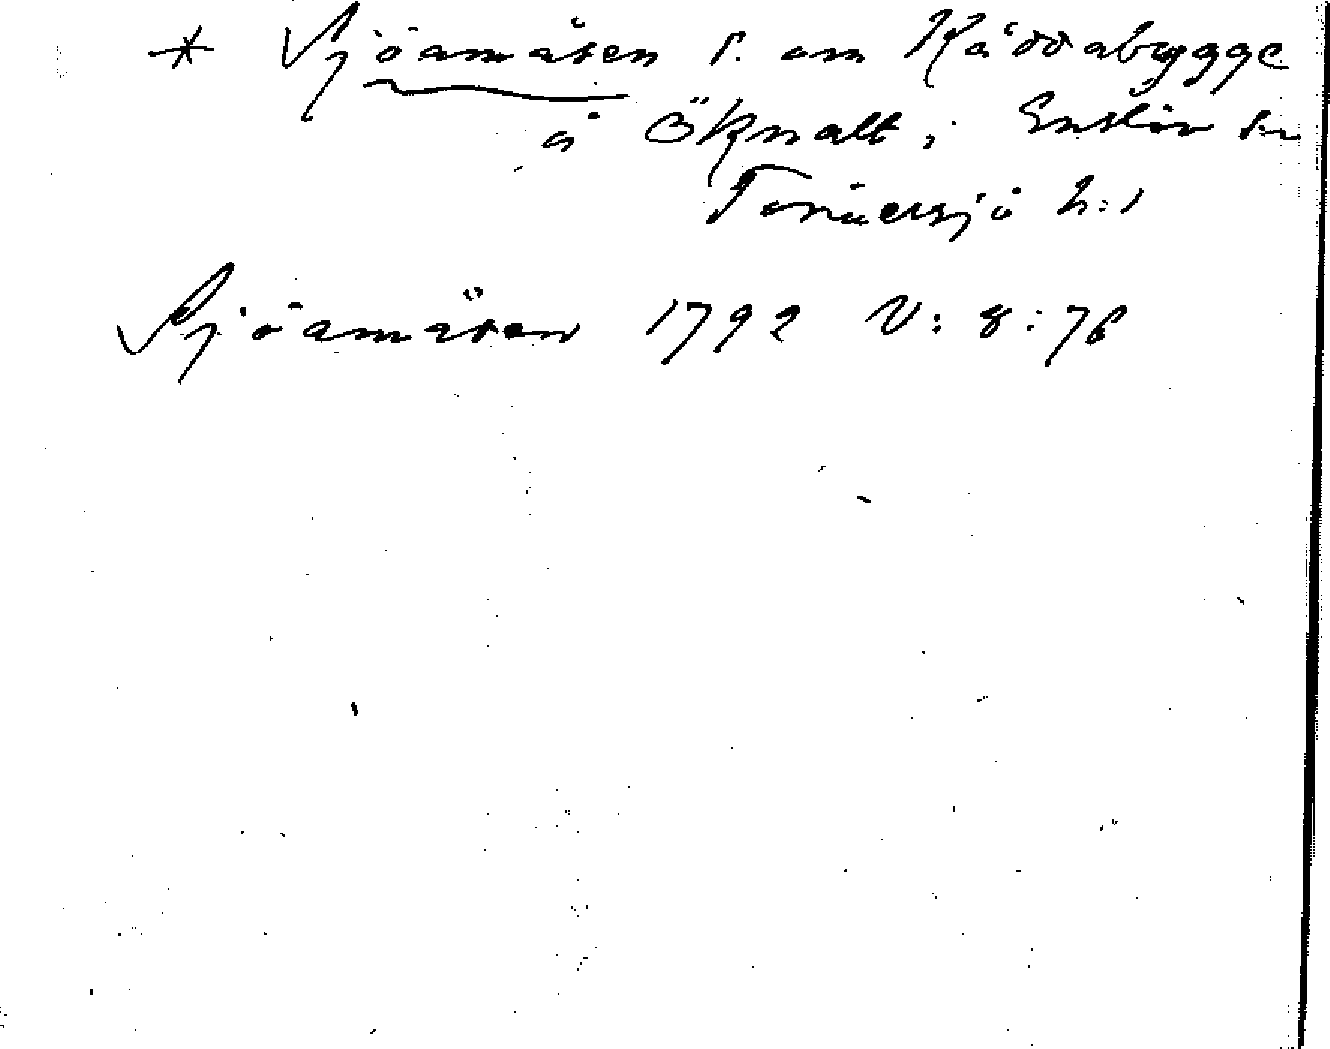 * Sjöamåsen S. om Råddabygge
å Öknalt, i Enslöv sn
Tönnersjö h:d
Sjöamåsen 1792 V: 8: 76